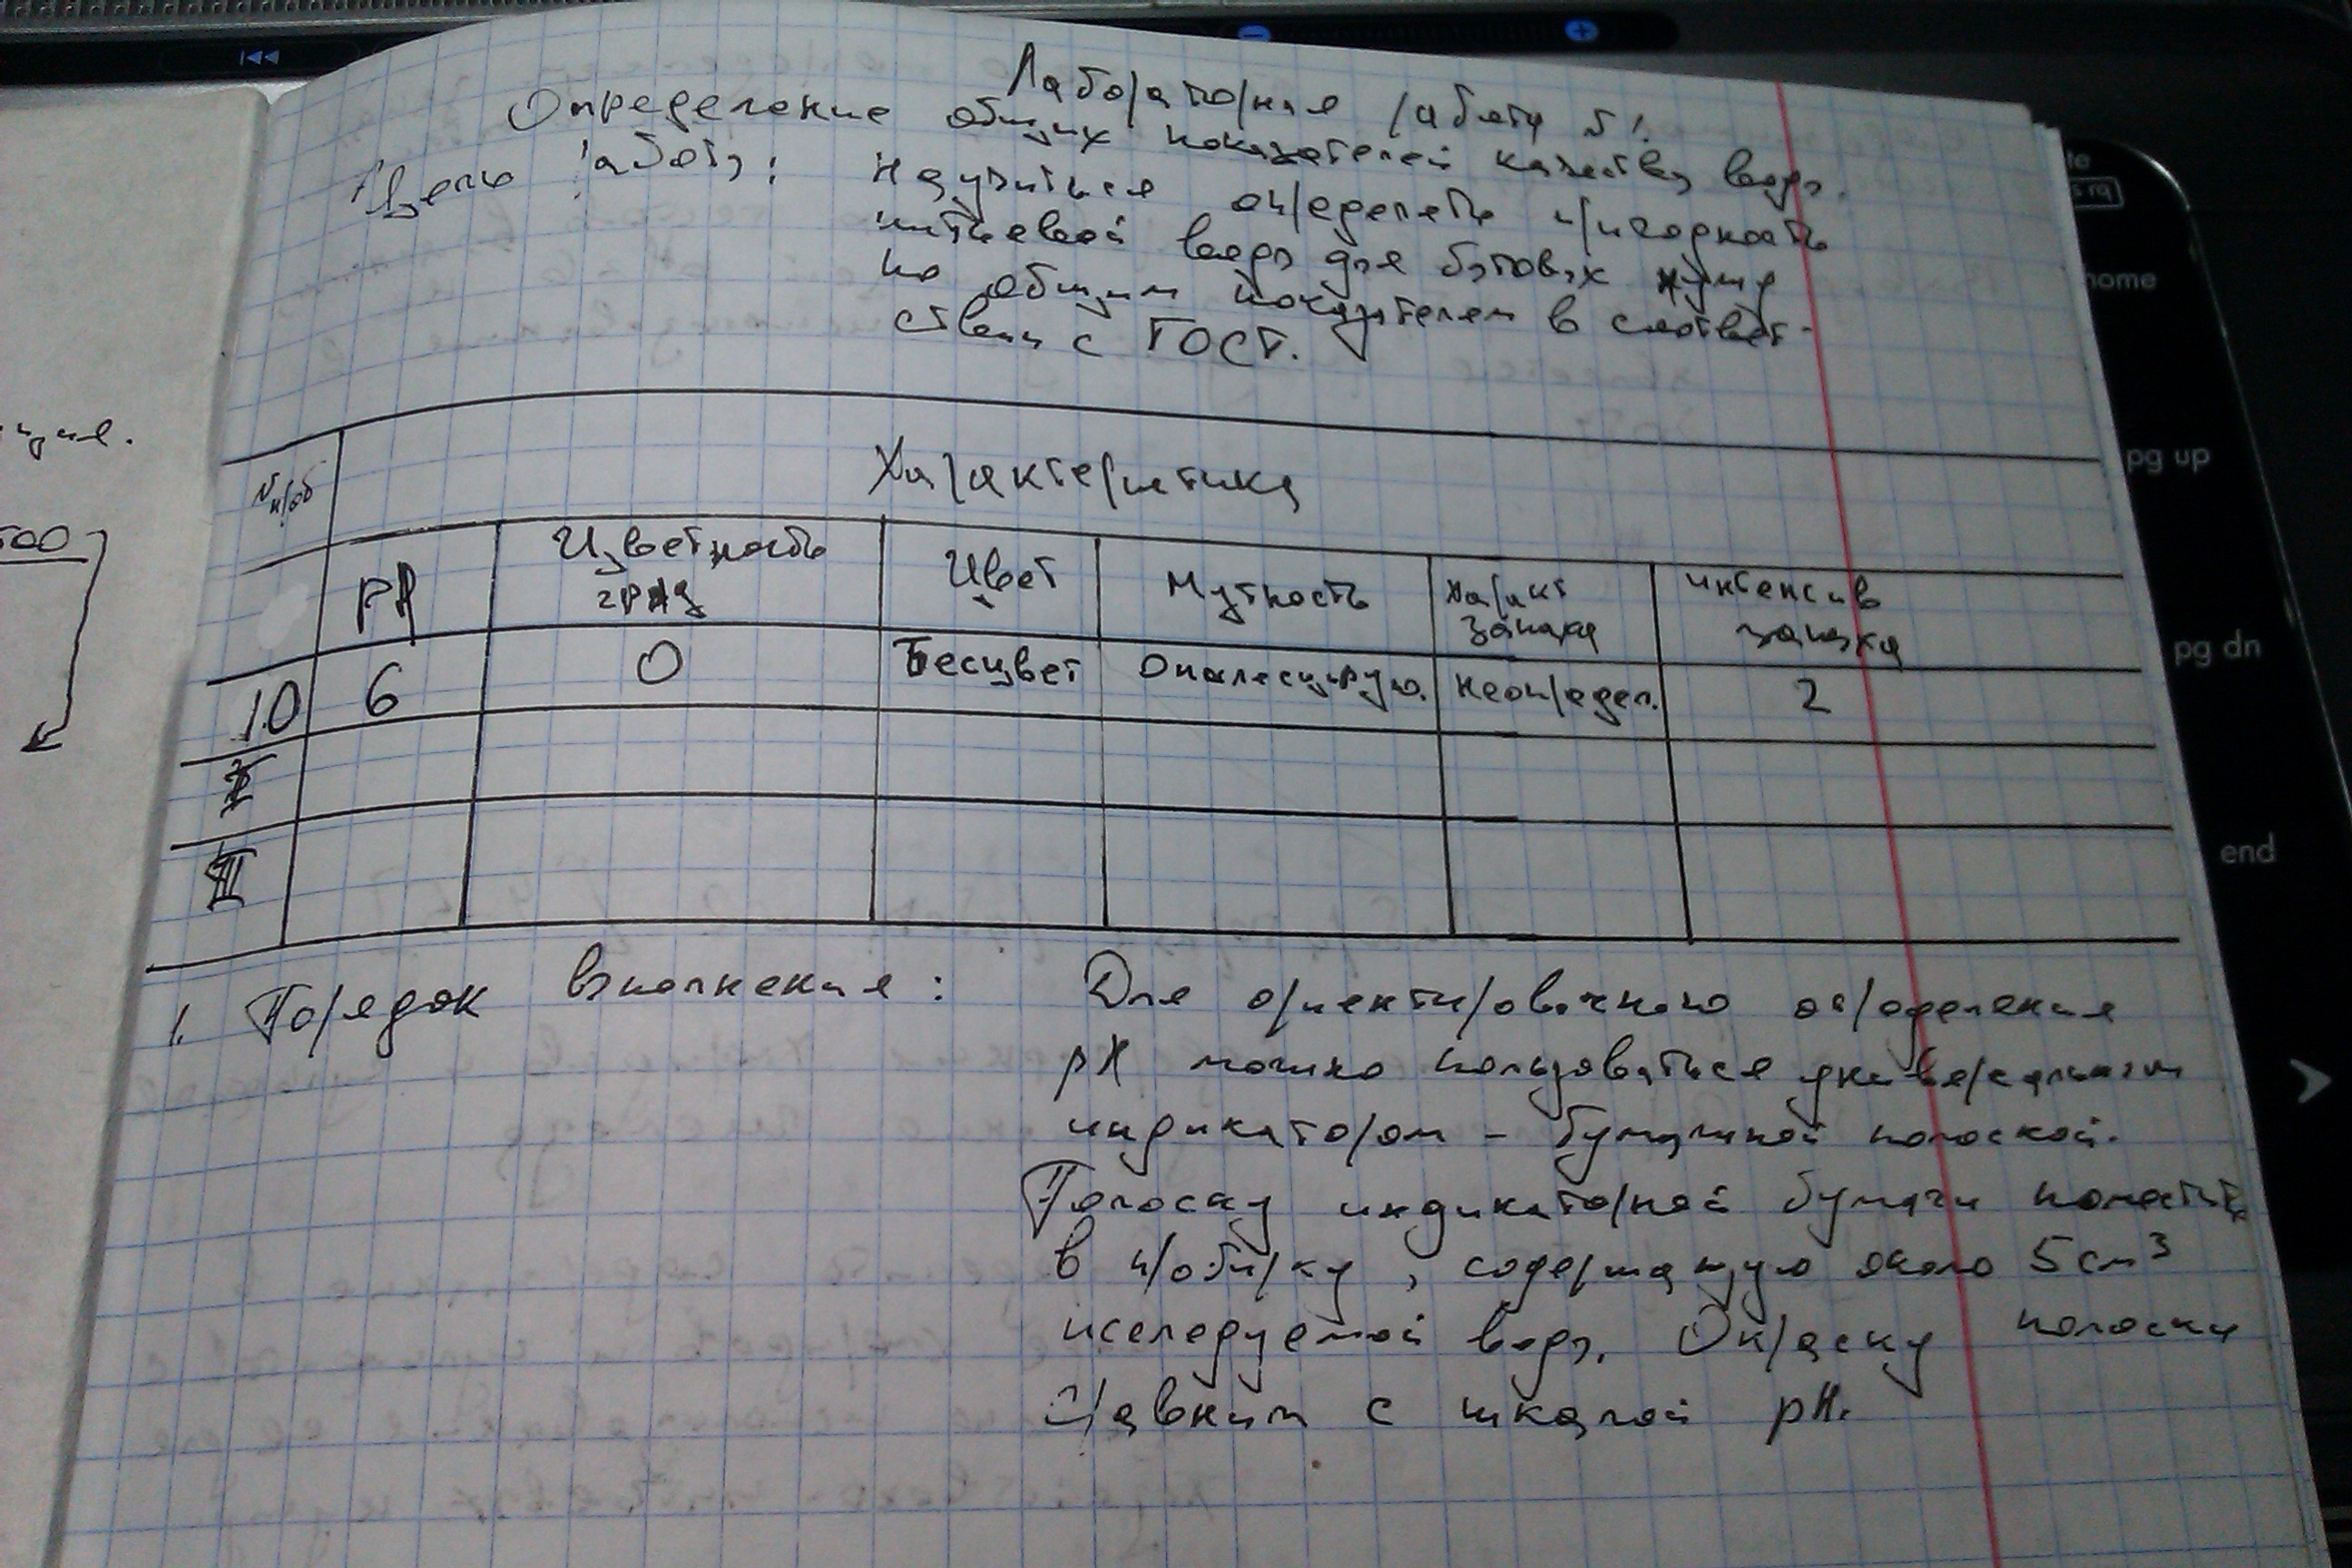 Лабораторная работа №1.
Определение общих показателей качества воды.
Цель работы: Научиться определять пригодность
питьевой воды для бытовых нужд
по общим показателям в соответ-
ствии с ГОСТ.
ция.
500
№ проб
Характеристика
pH
Цветность град
Цвет
Мутность
Характ запаха
интенсив запаха
10 6 0 Бесцвет Опалесцирую. Неопредел. 2
I
II
1. Порядок выполнения: Для ориентировочного определения
pH можно пользоваться универсальным
индикатором - бумажной полоской.
Полоску индикаторной бумаги поместить
в пробирку, содержащую около 5 см³
исследуемой воды. Окраску полоски
сравним с шкалой pH.
home
pg up
pg dn
end